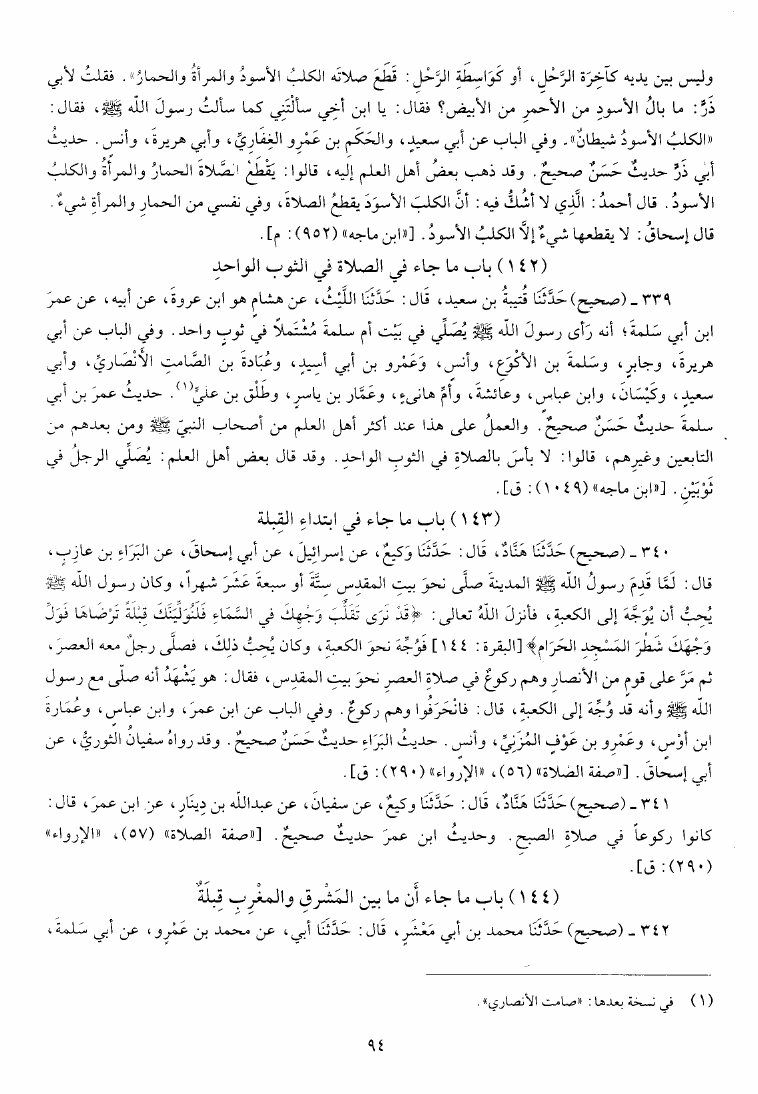 وليس بين يديه كآخِرَة الرَّحْلِ، أو كَوَاسِطَةِ الرَّحْلِ: قَطَعَ صلاتَه الكلبُ الأسودُ والمرأةُ والحمارُ». فقلتُ لأبي
ذَرٍّ: ما بالُ الأسودِ من الأحمرِ من الأبيضِ؟ فقال: يا ابن أخِي سألْتَنِي كما سألتُ رسولَ الله ﷺ، فقال:
«الكلبُ الأسودُ شيطانٌ». وفي الباب عن أبي سعيدٍ، والحَكَمِ بن عَمْرٍو الغِفَارِيِّ، وأبي هريرةَ، وأنسٍ. حديثُ
أبي ذَرٍّ حديثٌ حَسَنٌ صحيحٌ. وقد ذهب بعضُ أهل العلم إليه، قالوا: يَقْطَعُ الصَّلاةَ الحمارُ والمرأةُ والكلبُ
الأسودُ. قال أحمدُ: الَّذِي لا أشُكُّ فيه: أنَّ الكلبَ الأسوَدَ يقطعُ الصلاةَ، وفي نفسي من الحمارِ والمرأةِ شيءٌ.
قال إسحاقُ: لا يقطعها شيءٌ إلَّا الكلبُ الأسودُ. [«ابن ماجه» (٩٥٢): م].
(١٤٢) باب ما جاء في الصلاة في الثوب الواحدِ
٣٣٩ ـ (صحيح) حَدَّثَنَا قُتيبةُ بن سعيد، قال: حَدَّثَنَا اللَّيْثُ، عن هشامٍ هو ابن عروةَ، عن أبيه، عن عمرَ
ابن أبي سَلمةَ؛ أنه رَأى رسولَ الله ﷺ يُصَلِّي في بَيْت أم سلمةَ مُشْتَملاً في ثوبٍ واحد. وفي الباب عن أبي
هريرةَ، وجابرٍ، وسَلمةَ بن الأكْوَعِ، وأنسٍ، وَعَمْرِو بن أبي أَسِيدٍ، وعُبَادةَ بن الصَّامتِ الأنْصَارِيِّ، وأبي
سعيدٍ، وكَيْسَانَ، وابن عباسٍ، وعائشةَ، وأمِّ هانىءٍ، وعَمَّار بن ياسرٍ، وطَلْق بن عليٍّ(١). حديثُ عمرَ بن أبي
سلمةَ حديثٌ حَسَنٌ صحيحٌ. والعملُ على هذا عند أكثر أهل العلم من أصحاب النبيّ ﷺ ومن بعدهم من
التابعين وغيرِهم، قالوا: لا بأسَ بالصلاةِ في الثوبِ الواحدِ. وقد قال بعض أهل العلم: يُصَلِّي الرجلُ في
ثَوْبَيْنِ. [«ابن ماجه» (١٠٤٩): ق].
(١٤٣) باب ما جاء في ابتداءِ القِبلة
٣٤٠ ـ (صحيح) حَدَّثَنَا هَنَّادٌ، قال: حَدَّثَنَا وَكيعٌ، عن إسرائيلَ، عن أبي إسحاقَ، عن البَرَاءِ بن عازِبٍ،
قال: لَمَّا قَدِمَ رسولُ الله ﷺ المدينةَ صلَّى نحوَ بيتِ المقدسِ سِتَّةَ أو سبعةَ عَشَرَ شهراً، وكان رسول الله ﷺ
يُحِبُّ أن يُوَجَّهَ إلى الكعبةِ، فأنزلَ اللهُ تعالى: ﴿قَدْ نَرَى تَقَلُّبَ وَجْهِكَ في السَّمَاءِ فَلَنُوَلِّيَنَّكَ قِبْلَةً تَرْضَاهَا فَوَلِّ
وَجْهَكَ شَطْرَ المَسْجِدِ الحَرَامِ﴾ [البقرة: ١٤٤] فَوُجِّهَ نحوَ الكعبةِ، وكان يُحِبُّ ذلِكَ، فصلَّى رجلٌ معه العصرَ،
ثم مَرَّ على قومٍ من الأنصارِ وهم ركوعٌ في صلاةِ العصرِ نحوَ بيتِ المقدسِ، فقال: هو يَشْهَدُ أنه صلى مع رسول
الله ﷺ وأنه قد وُجِّهَ إلى الكعبةِ، قال: فانْحَرَفُوا وهم ركوعٌ. وفي الباب عن ابن عمرَ، وابن عباسٍ، وعُمَارةَ
ابن أوْسٍ، وعَمْرِو بن عَوْفٍ المُزَنِيِّ، وأنسٍ. حديثُ البَرَاءِ حديثٌ حَسَنٌ صحيحٌ. وقد رواهُ سفيانُ الثوريُّ، عن
أبي إسحاقَ. [«صفة الصلاة» (٥٦)، «الإرواء» (٢٩٠): ق].
٣٤١ ـ (صحيح) حَدَّثَنَا هَنَّادٌ، قال: حَدَّثَنَا وكيعٌ، عن سفيانَ، عن عبدالله بن دِينَارٍ، عن ابن عمرَ، قال:
كانوا ركوعاً في صلاةِ الصبحِ. وحديثُ ابن عمرَ حديثٌ صحيحٌ. [«صفة الصلاة» (٥٧)، «الإرواء»
(٢٩٠): ق].
(١٤٤) باب ما جاء أن ما بين المَشْرقِ والمغْربِ قِبلَةٌ
٣٤٢ ـ (صحيح) حَدَّثَنَا محمد بن أبي مَعْشَرٍ، قال: حَدَّثَنَا أبي، عن محمد بن عَمْرٍو، عن أبي سَلمةَ،
(١) في نسخة بعدها: «صامت الأنصاري».
٩٤